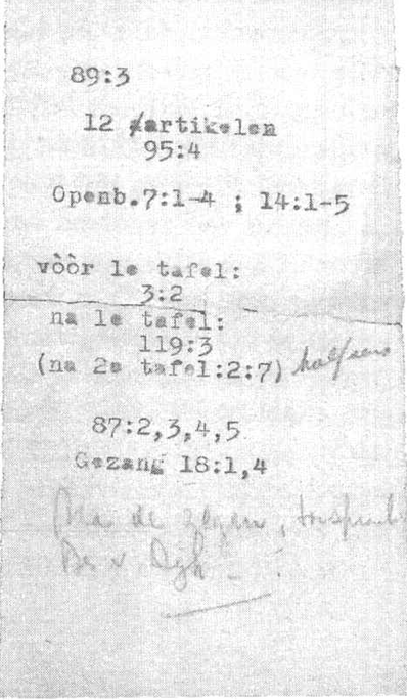 89:3
12 artikelen
95:4
Openb.7:1-4 ; 14:1-5
vòòr 1e tafel:
3:2
na 1e tafel:
119:3
(na 2e tafel:2:7)
87:2,3,4,5
Gezang 18:1,4
(Na de zegen,
Ds v Dijk